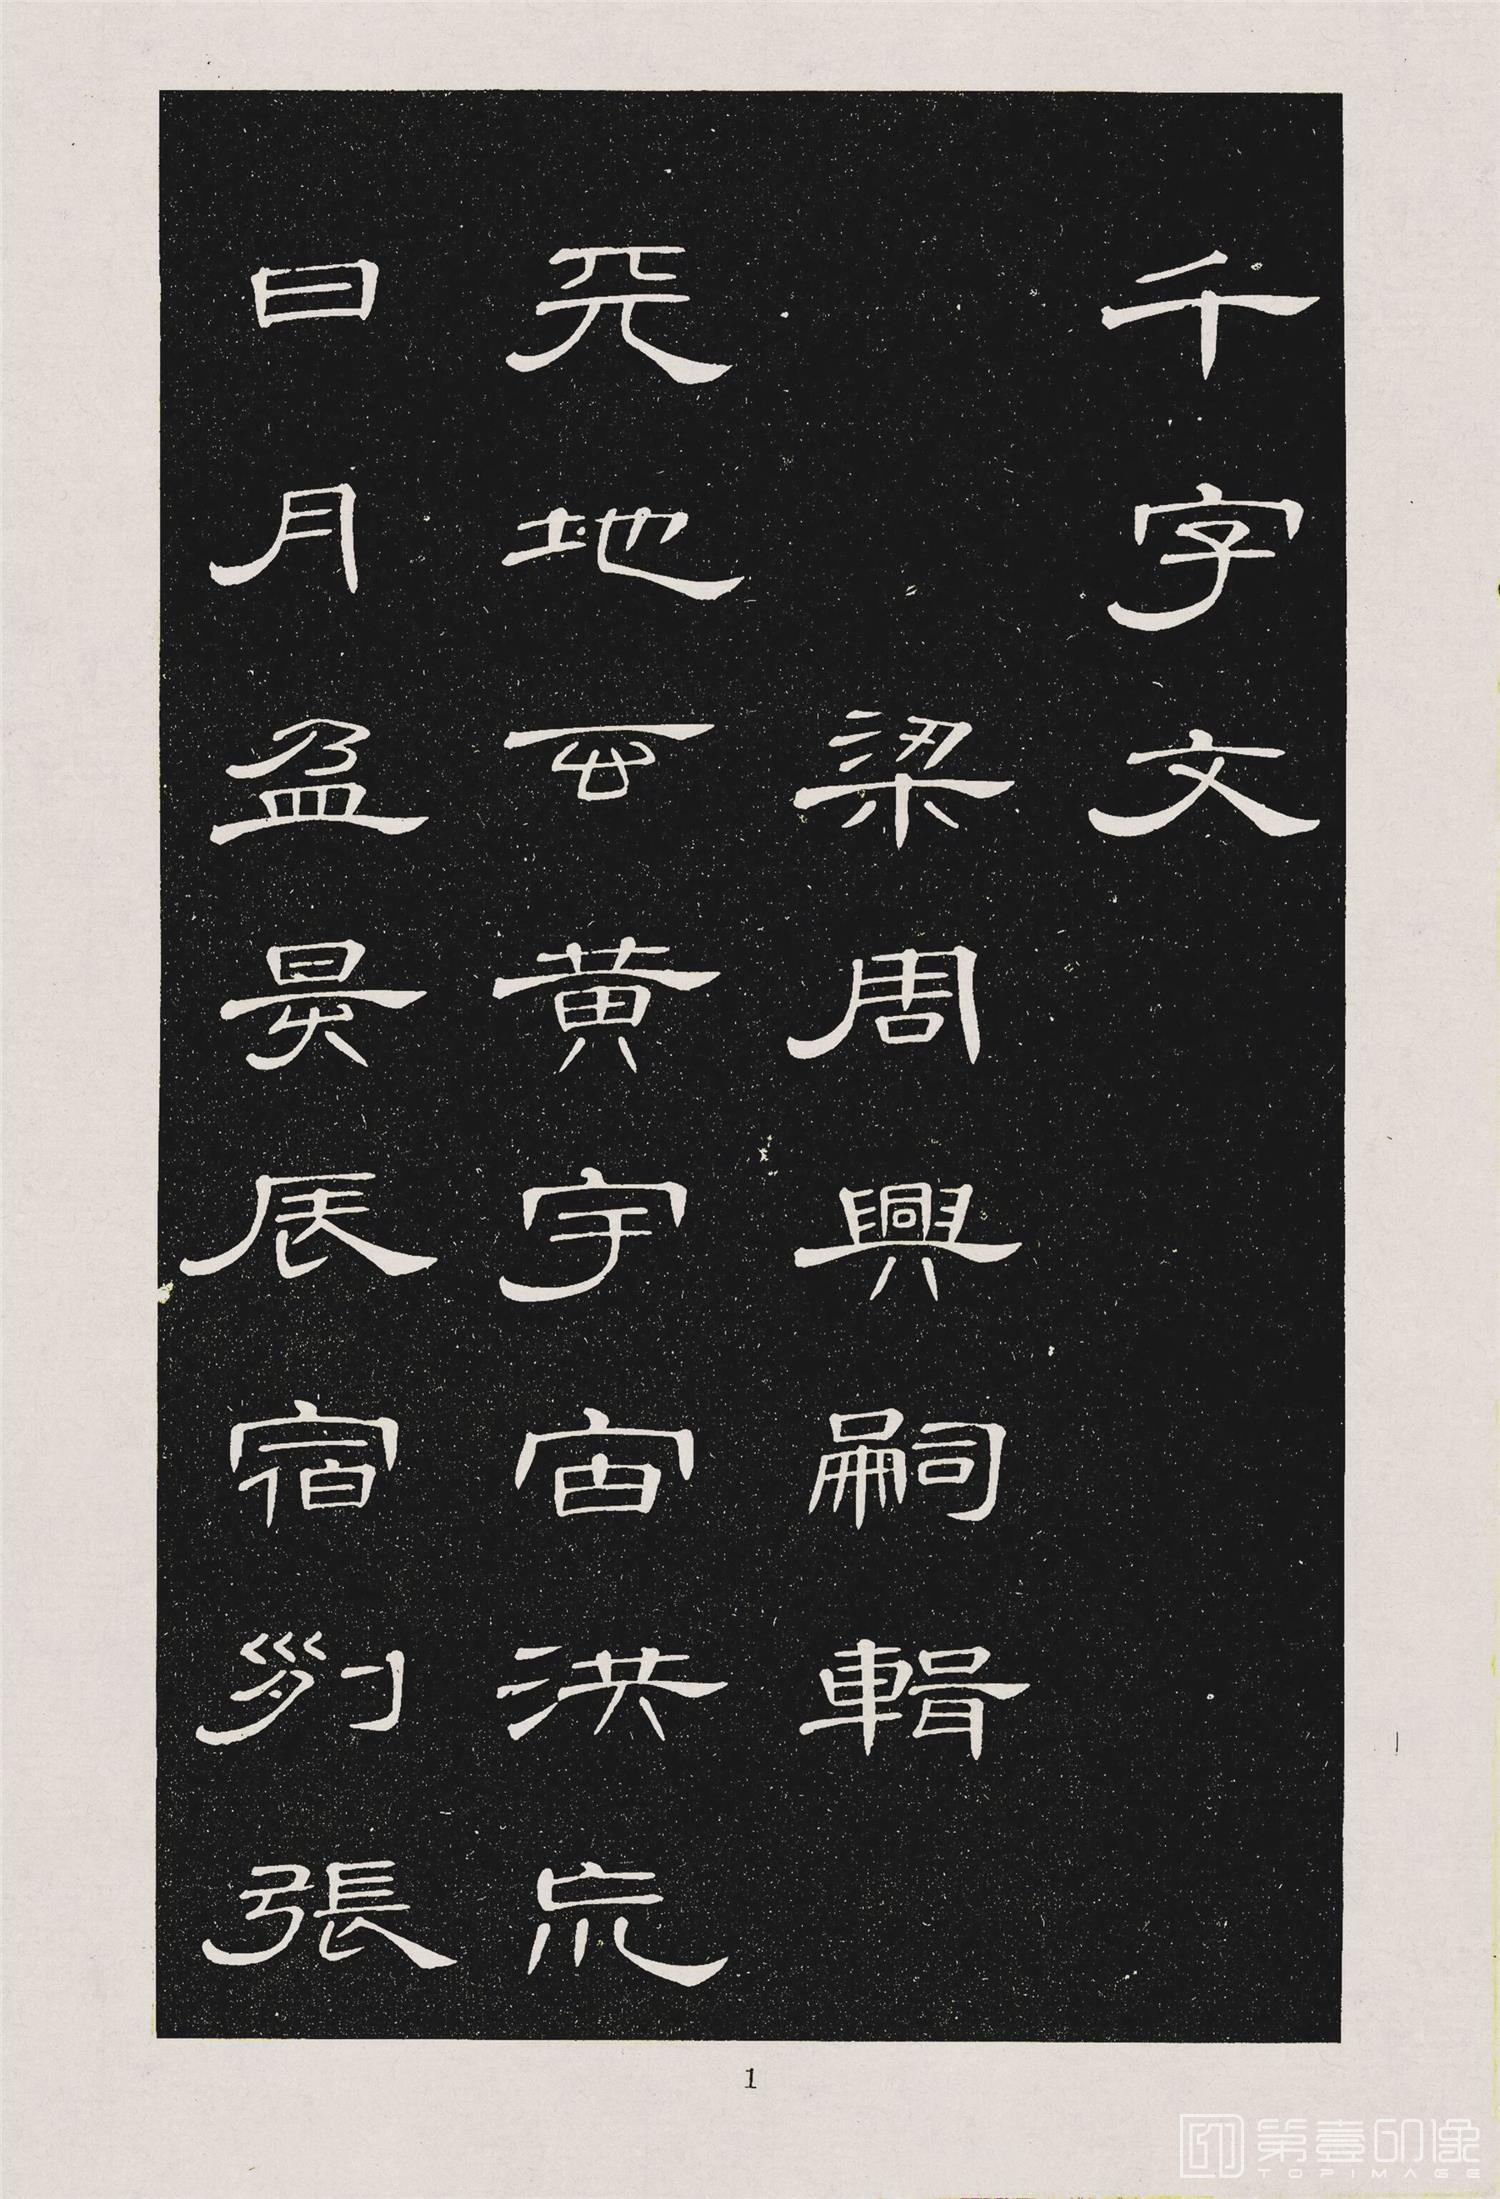 千字文
梁周興嗣輯
天地玄黄宇宙洪巟
日月盈昃辰宿列張
1
第壹印像
TOPIMAGE